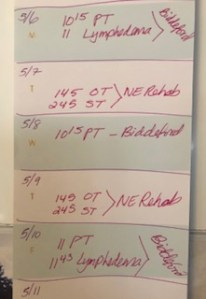 5/6
10 15 PT
11 Lymphedema
Biddeford
5/7
1 45 OT
2 45 ST
NE Rehab
5/8
10 15 PT - Biddeford
5/9
1 45 OT
2 45 ST
NE Rehab
5/10
11 PT
11 45 Lymphedema
Biddeford
5/11